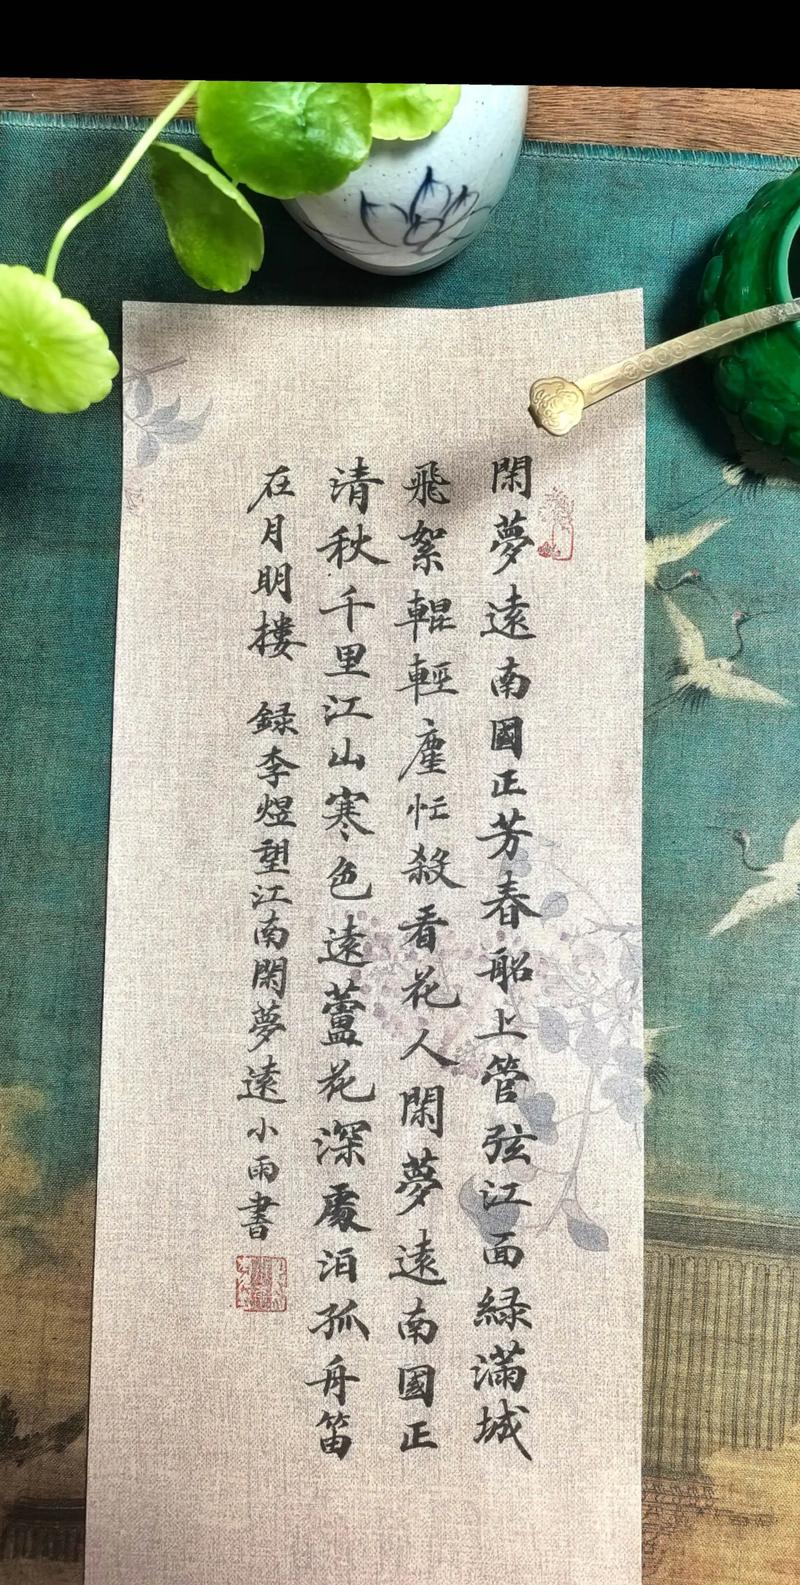 閑夢遠南國正芳春船上管弦江面緑滿城
飛絮輥輕塵忙殺看花人閑夢遠南國正
清秋千里江山寒色遠蘆花深處泊孤舟笛
在月明樓 録李煜望江南閑夢遠小雨書